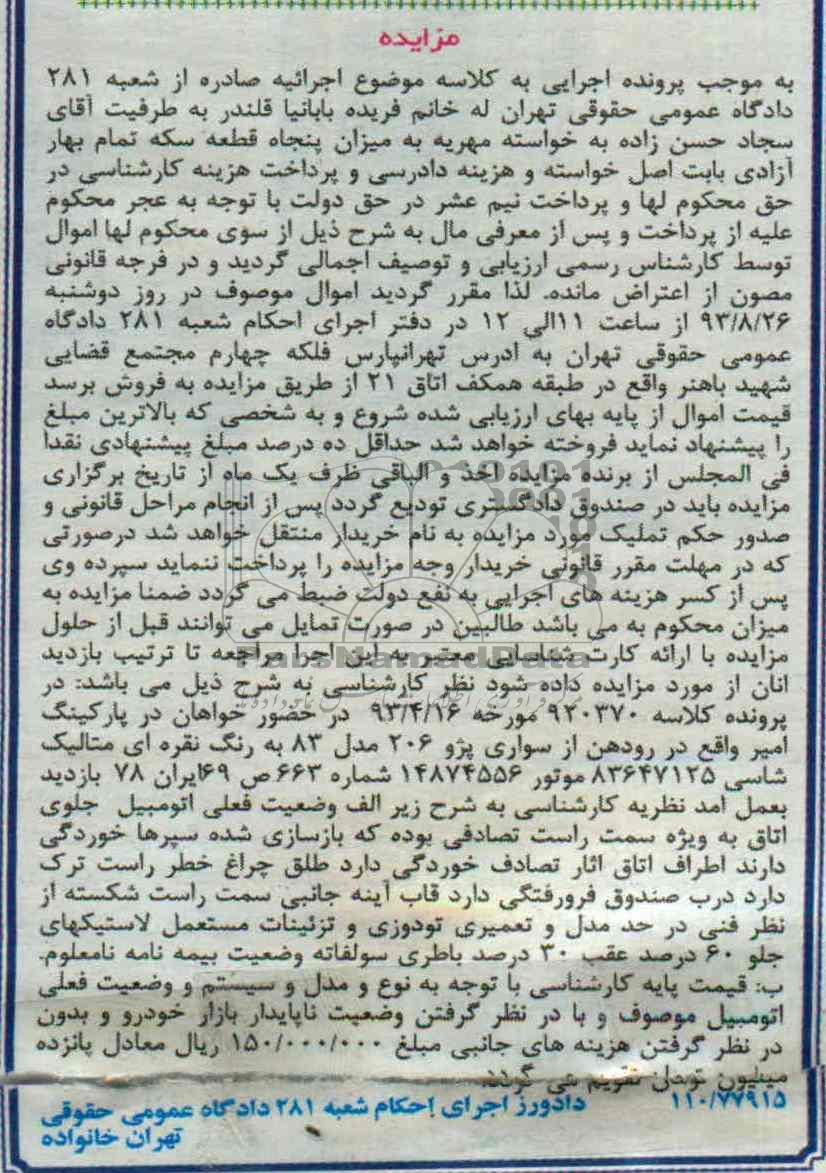 مزایده
به موجب پرونده اجرایی به کلاسه موضوع اجرائیه صادره از شعبه ۲۸۱
دادگاه عمومی حقوقی تهران له خانم فریده بابانیا قلندر به طرفیت آقای
سجاد حسن زاده به خواسته مهریه به میزان پنجاه قطعه سکه تمام بهار
آزادی بابت اصل خواسته و هزینه دادرسی و پرداخت هزینه کارشناسی در
حق محکوم لها و پرداخت نیم عشر در حق دولت با توجه به عجر محکوم
علیه از پرداخت و پس از معرفی مال به شرح ذیل از سوی محکوم لها اموال
توسط کارشناس رسمی ارزیابی و توصیف اجمالی گردید و در فرجه قانونی
مصون از اعتراض مانده. لذا مقرر گردید اموال موصوف در روز دوشنبه
۹۳/۸/۲۶ از ساعت ۱۱الی ۱۲ در دفتر اجرای احکام شعبه ۲۸۱ دادگاه
عمومی حقوقی تهران به ادرس تهرانپارس فلکه چهارم مجتمع قضایی
شهید باهنر واقع در طبقه همکف اتاق ۲۱ از طریق مزایده به فروش برسد
قیمت اموال از پایه بهای ارزیابی شده شروع و به شخصی که بالاترین مبلغ
را پیشنهاد نماید فروخته خواهد شد حداقل ده درصد مبلغ پیشنهادی نقدا
فی المجلس از برنده مزایده اخذ و الباقی ظرف یک ماه از تاریخ برگزاری
مزایده باید در صندوق دادگستری تودیع گردد پس از انجام مراحل قانونی و
صدور حکم تملیک مورد مزایده به نام خریدار منتقل خواهد شد درصورتی
که در مهلت مقرر قانونی خریدار وجه مزایده را پرداخت ننماید سپرده وی
پس از کسر هزینه های اجرایی به نفع دولت ضبط می گردد ضمنا مزایده به
میزان محکوم به می باشد طالبین در صورت تمایل می توانند قبل از حلول
مزایده با ارائه کارت شناسایی معتبر به این اجرا مراجعه تا ترتیب بازدید
انان از مورد مزایده داده شود نظر کارشناسی به شرح ذیل می باشد: در
پرونده کلاسه ۹۲۰۳۷۰ مورخه ۹۳/۴/۱۶ در حضور خواهان در پارکینگ
امیر واقع در رودهن از سواری پژو ۲۰۶ مدل ۸۳ به رنگ نقره ای متالیک
شاسی ۸۳۶۴۷۱۲۵ موتور ۱۴۸۷۴۵۵۶ شماره ۶۶۳ ص ۶۹ایران ۷۸ بازدید
بعمل امد نظریه کارشناسی به شرح زیر الف وضعیت فعلی اتومبیل جلوی
اتاق به ویژه سمت راست تصادفی بوده که بازسازی شده سپرها خوردگی
دارند اطراف اتاق اثار تصادف خوردگی دارد طلق چراغ خطر راست ترک
دارد درب صندوق فرورفتگی دارد قاب آینه جانبی سمت راست شکسته از
نظر فنی در حد مدل و تعمیری تودوزی و تزئینات مستعمل لاستیکهای
جلو ۶۰ درصد عقب ۳۰ درصد باطری سولفاته وضعیت بیمه نامه نامعلوم.
ب: قیمت پایه کارشناسی با توجه به نوع و مدل و سیستم و وضعیت فعلی
اتومبیل موصوف و با در نظر گرفتن وضعیت ناپایدار بازار خودرو و بدون
در نظر گرفتن هزینه های جانبی مبلغ ۱۵۰/۰۰۰/۰۰۰ ریال معادل پانزده
میلیون تومان تقویم می گردد.
۱۱۰/۷۷۹۱۵ دادورز اجرای احکام شعبه ۲۸۱ دادگاه عمومی حقوقی
تهران خانواده
ParsNamadData